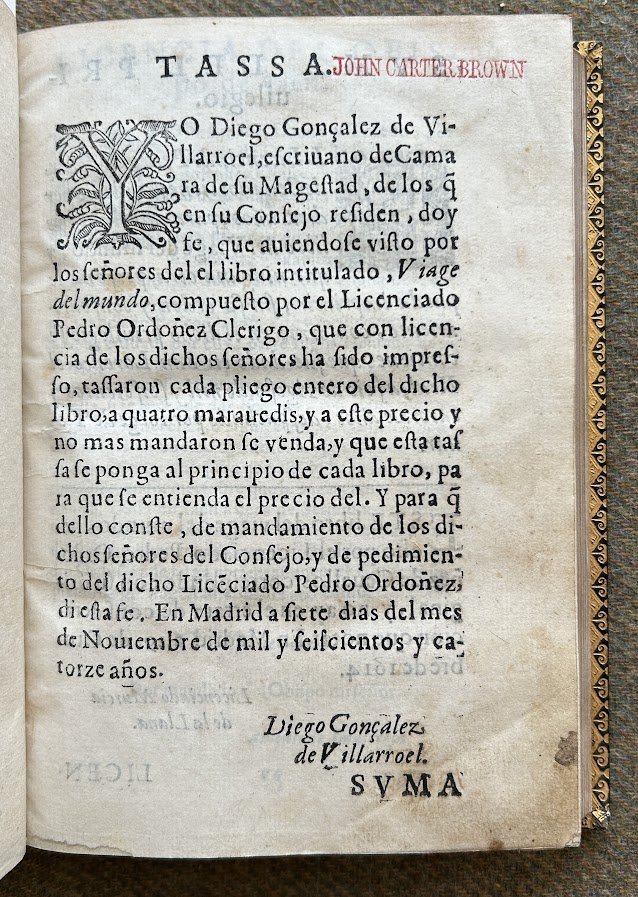 TASSA. JOHN CARTER BROWN
YO Diego Gonçalez de Vi-
llarroel, escriuano de Cama
ra de su Magestad, de los q̃
en su Consejo residen, doy
fe, que auiendose visto por
los señores del el libro intitulado, Viage
del mundo, compuesto por el Licenciado
Pedro Ordoñez Clerigo, que con licen-
cia de los dichos señores ha sido impres-
so, tassaron cada pliego entero del dicho
libro, a quatro marauedis, y a este precio y
no mas mandaron se venda, y que esta tas
sa se ponga al principio de cada libro, pa
ra que se entienda el precio del. Y para q̃
dello conste, de mandamiento de los di-
chos señores del Consejo, y de pedimien-
to del dicho Licẽciado Pedro Ordoñez,
di esta fe. En Madrid a siete dias del mes
de Nouiembre de mil y seiscientos y ca-
torze años.
Diego Gonçalez
de Villarroel.
SVMA